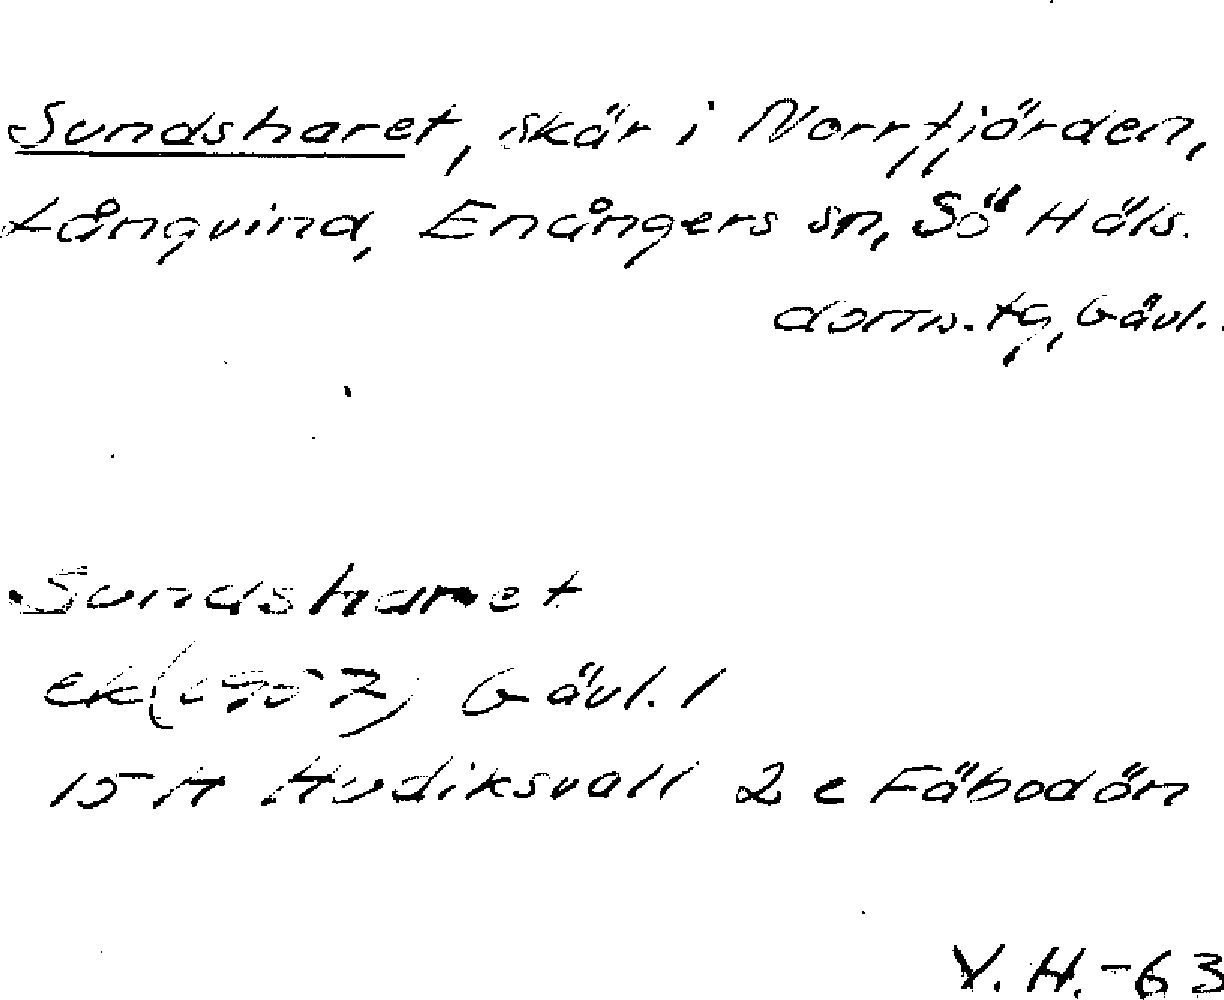 Sundsharet, skär i Norrfjärden,
Långvind, Enångers sn, Sö Häls.
doms.tg, Gävl.
Sundsharet
ek(1957) Gävl. l
15 H Hudiksvall 2 e Fäbodön
V.H.-63